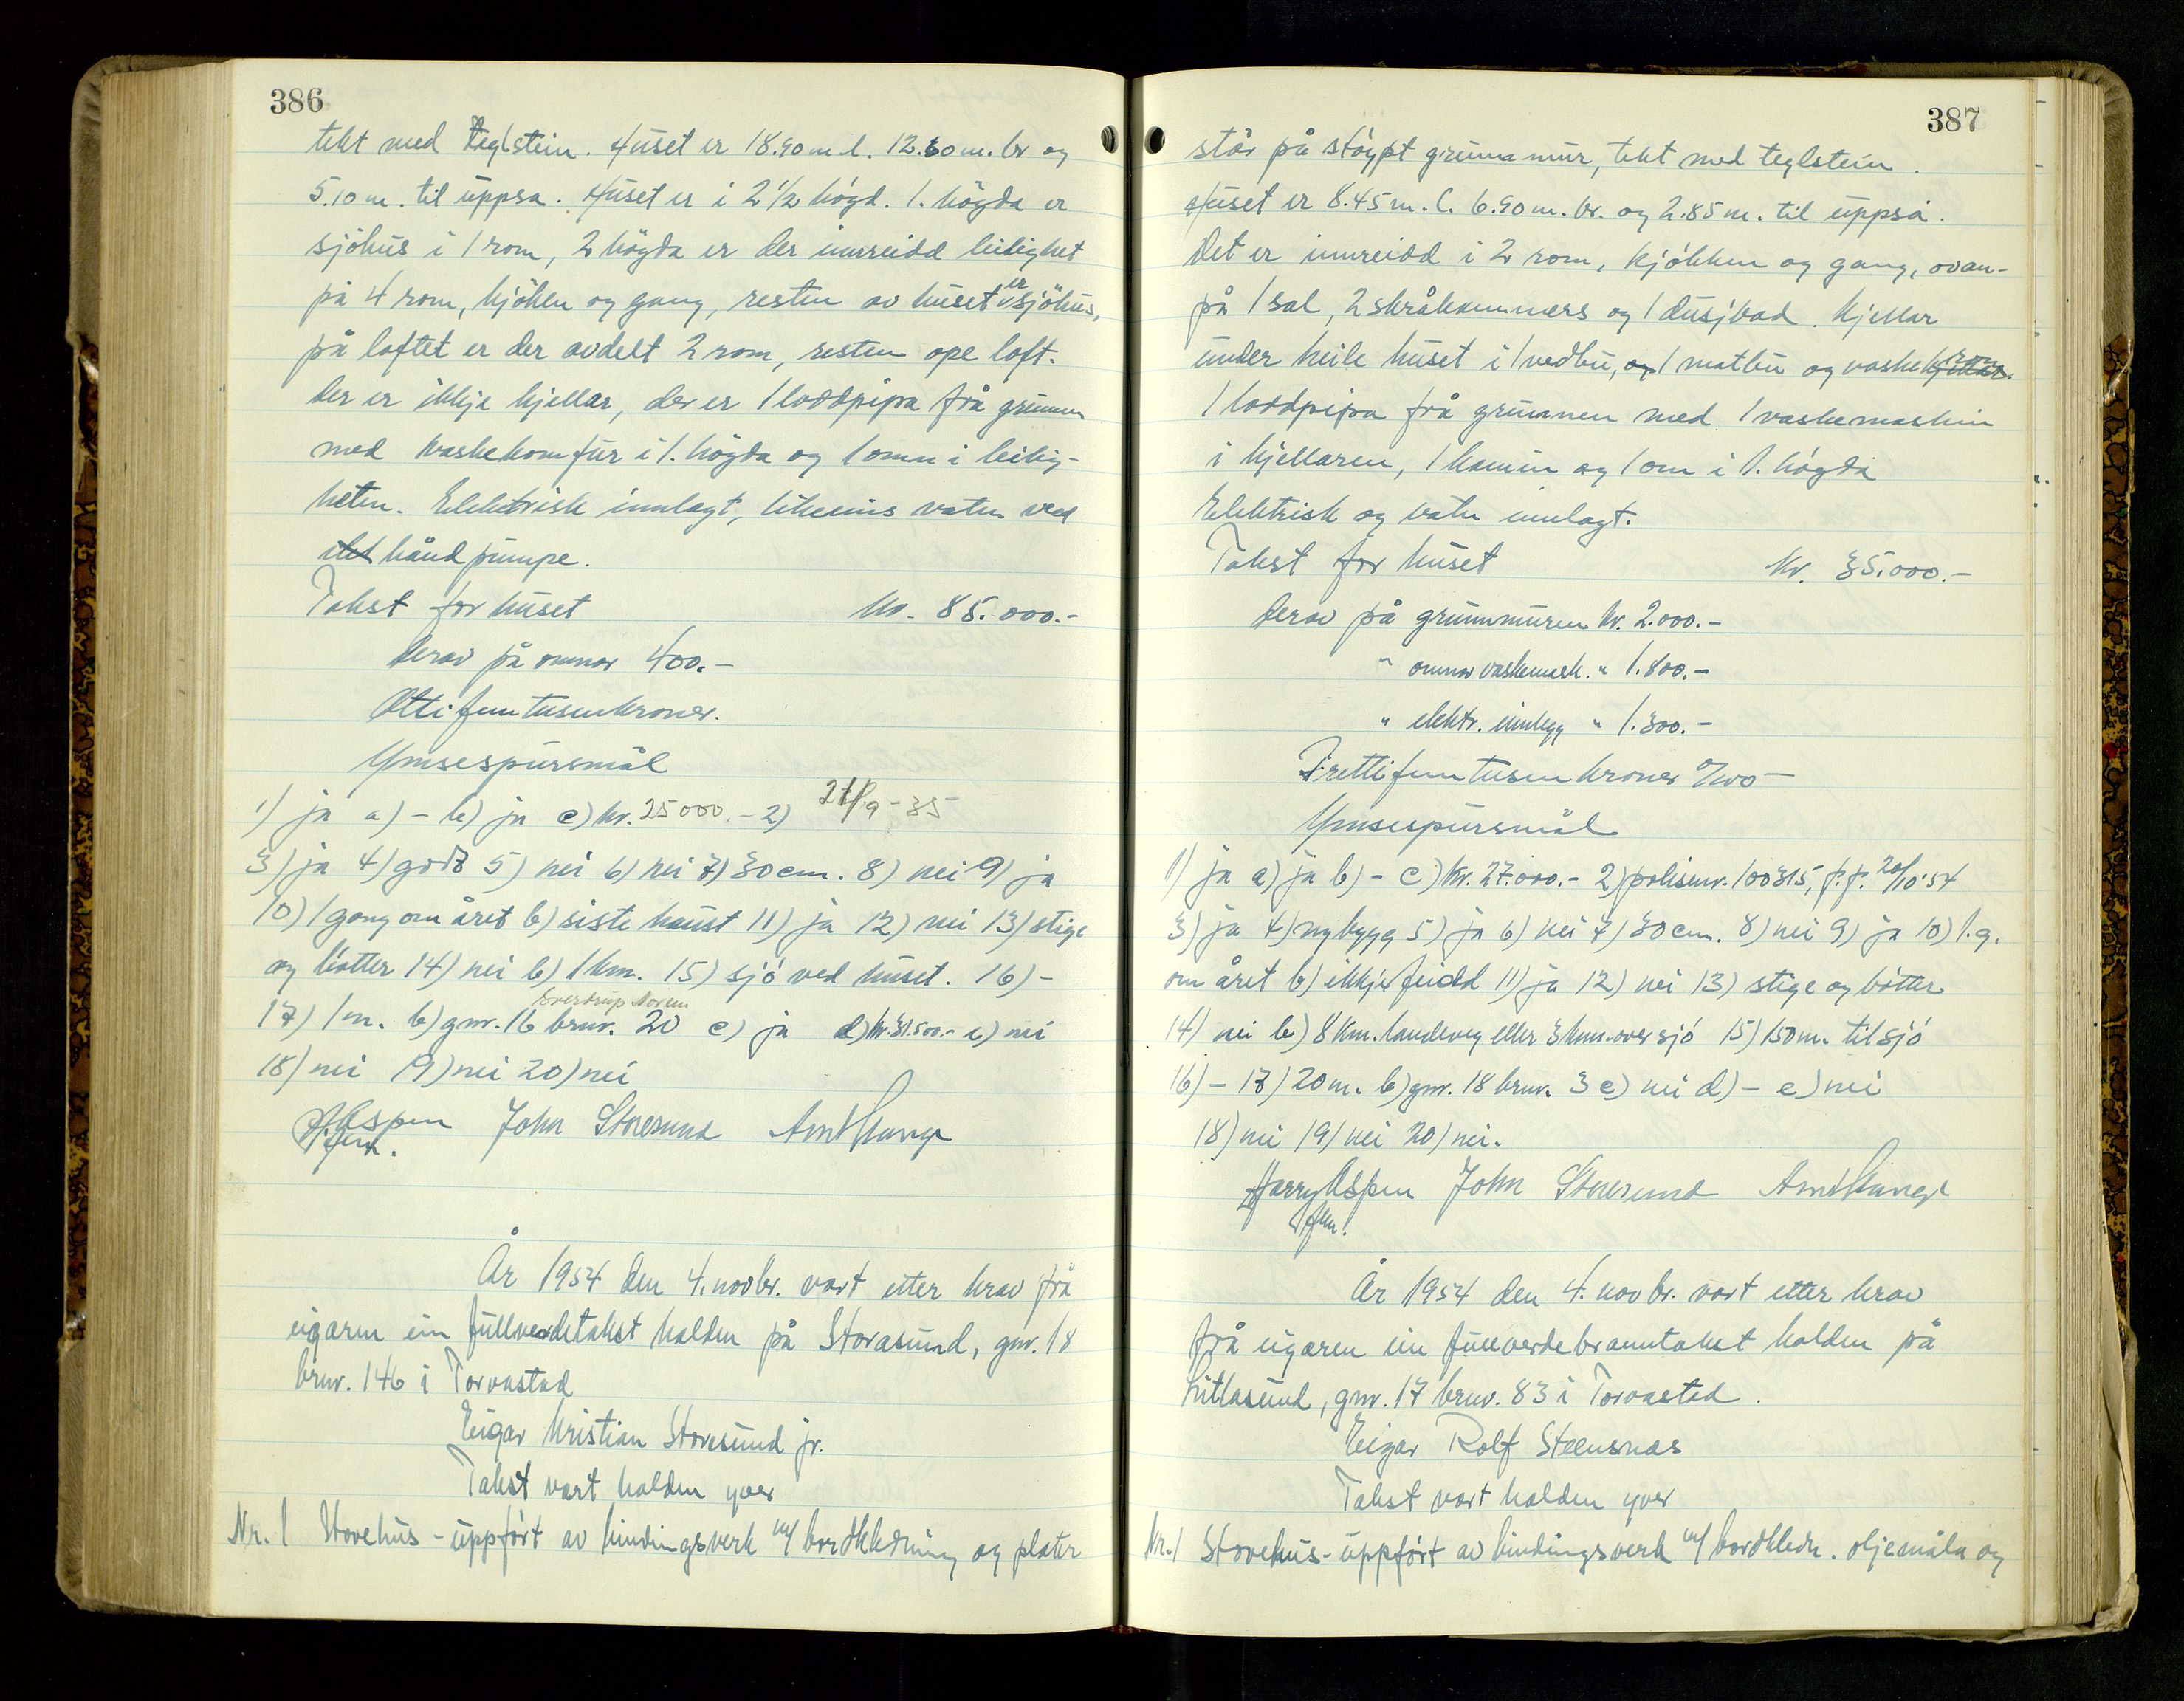 386
tekt med teglstein. Huset er 18.90 m. l. 12.60 m. br og
5.10 m. til uppsa. Huset er i 2 1/2 högd. 1. högda er
sjöhus i 1 rom, 2 högda er der innreidd leilighet
på 4 rom, kjöken og gang, resten av huset er sjöhus,
på loftet er der avdelt 2 rom, resten ope loft.
Der er ikkje kjellar, der er 1 loddpipa frå grunnen
med vaskekomfur i 1. högda og 1 omn i leilig-
heten. Elektrisk innlagt, likeeins vatn ved
håndpumpe.
Takst for huset kr. 85.000.-
Derav på omnar 400.-
Åttifemtusenkroner.
Ymsespursmål
1) ja a) - b) ja c) kr. 25000.- 2) /9-35
3) ja 4) godt 5) nei 6) nei 7) 30 cm. 8) nei 9) ja
10) 1 gong om året b) siste haust 11) ja 12) nei 13) stige
og bötter 14) nei b) 1 km. 15) sjö ved huset. 16) -
Sverdrup Norem
17) 1 m. b) gnr. 16 bruv. 20 c) ja d) kr. 31.500.- e) nei
18) nei 19) nei 20) nei
H Aspen John Storesund Arnt Hauge
fm.
År 1954 den 4. novbr. vart etter krav frå
eigaren ein fullverdetakst halden på Storasund, gnr. 18
bruv. 146 i Torvastad
Eigar Kristian Storesund jr.
Takst vart halden yver
Nr. 1 Stovehus - uppfört av bindingsverk m/ bordkledning og plater
387
står på stöypt grunnmur, tekt med teglstein.
Huset er 8.45 m. l. 6.90 m. br. og 2.85 m. til uppsa.
Det er innreidd i 2 rom, kjökken og gang, ovan-
på 1 sal, 2 skråkammers og 1 dusjbad. Kjellar
under heile huset i 1 vedbu, og 1 matbu og vaskerom
1 loddpipa frå grunnen med 1 vaskemaskin
i kjellaren, 1 kamin og 1 omn i 1. högda
Elektrisk og vatn innlagt.
Takst for huset kr. 35.000.-
Derav på grunnmuren kr. 2.000.-
" omnar vaskemask. " 1.800.-
" elektr. innlegg " 1.300.-
Trettifemtusenkroner 0/100 -
Ymsespursmål
1) ja a) ja b) - c) kr. 27.000.- 2) polisenr. 100315, f.f. 20/10 54
3) ja 4) nybygg 5) ja 6) nei 7) 30 cm. 8) nei 9) ja 10) 1. g.
om året b) ikkje feidd 11) ja 12) nei 13) stige og bötter
14) nei b) 8 km. landeveg eller 3 km. over sjö 15) 150 m. til sjö
16) - 17) 20 m. b) gnr. 18 bruv. 3 c) nei d) - e) nei
18) nei 19) nei 20) nei.
Harry Aspen John Storesund Arnt Hauge
fm.
År 1954 den 4. novbr. vart etter krav
frå eigaren ein fullverdebranntakst halden på
Litlasund, gnr. 17 bruv. 83 i Torvastad.
Eigar Rolf Steensnæs
Takst vart halden yver
Nr. 1 Stovehus - uppfört av bindingsverk m/ bordkledn. oljemåla og